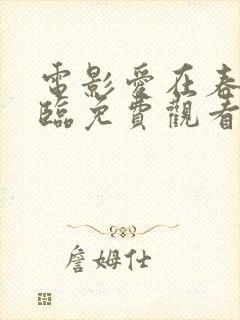 電影愛在春
臨免費觀看
詹姆仕